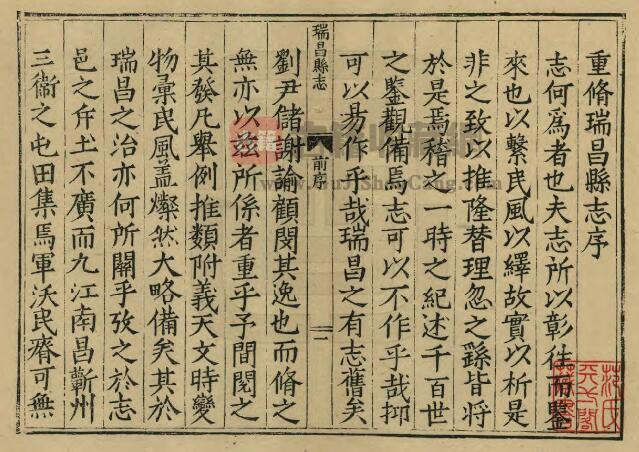 重脩瑞昌縣志序
志何爲者也夫志所以彰徃而鑒
來也以繫民風以繹故實以析是
非之致以推隆替理忽之繇皆将
於是焉稽之一時之紀述千百世
之鑒觀備焉志可以不作乎哉抑
可以易作乎哉瑞昌之有志舊矣
瑞昌縣志
前序
一
劉尹儲謝諭顧閔其逸也而脩之
無亦以兹所係者重乎予間閱之
其發凡舉例推類附義天文時變
物彚民風盖燦然大略備矣其於
瑞昌之治亦何所關乎攷之於志
邑之斥土不廣而九江南昌蘄州
三衞之屯田集焉軍沃民瘠可無